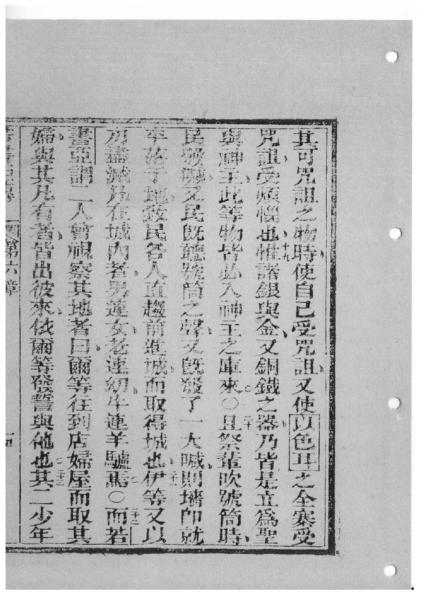 其可咒詛之物時使自己受咒詛又使以色耳之全寨受
咒詛受煩惱也惟諸銀與金又銅鐵之器乃皆是立為聖
與神主此等物皆必入神主之庫來○且祭輩吹號筒時
民發喊又民既聽號筒之聲又既發了一大喊則墻即就
牢落于地致民各人直趨前進城而取得城也伊等又以
刀盡滅凡在城內者男連女老連幼牛連羊驢焉○而若
書亞謂二人曾視察其地者曰爾等往到店婦屋而取其
婦與其凡有者皆出彼來依爾等發誓與他也其二少年
第六章